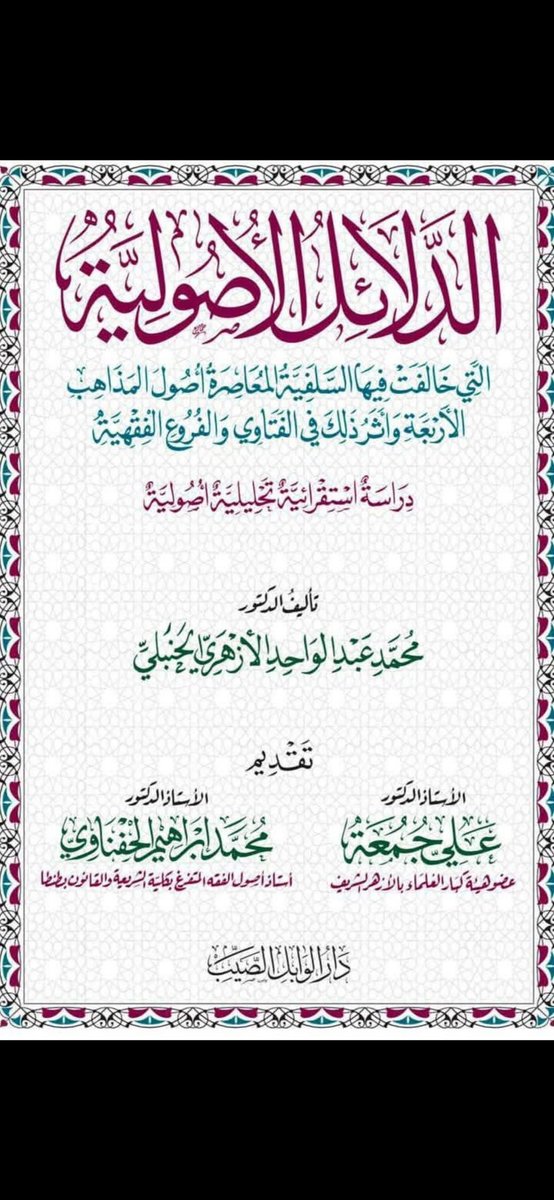 الدَّلَائِلُ الأُصُولِيَّةُ
الَّتِي خَالَفَتْ فِيهَا السَّلَفِيَّةُ المُعَاصِرَةُ أُصُولَ المَذَاهِبِ
الأَرْبَعَةِ وَأَثَرُ ذَلِكَ فِي الفَتَاوِي وَالفُرُوعِ الفِقْهِيَّةِ
دِرَاسَةٌ اسْتِقْرَائِيَّةٌ تَحْلِيلِيَّةٌ أُصُولِيَّةٌ
تأليف الدكتور
مُحَمَّد عَبْدِ الوَاحِدِ الأَزْهَرِيّ الحَنْبَلِيّ
تَقْدِيم
الأستاذ الدكتور
عَلِي جُمُعَة
عضو هيئة كبار العلماء بالأزهر الشريف
الأستاذ الدكتور
مُحَمَّد إبْرَاهِيم الحَفْنَاوِي
أستاذ أصول الفقه المتفرغ بكلية الشريعة والقانون بطنطا
دَارُ الوَابِلِ الصَّيِّبِ